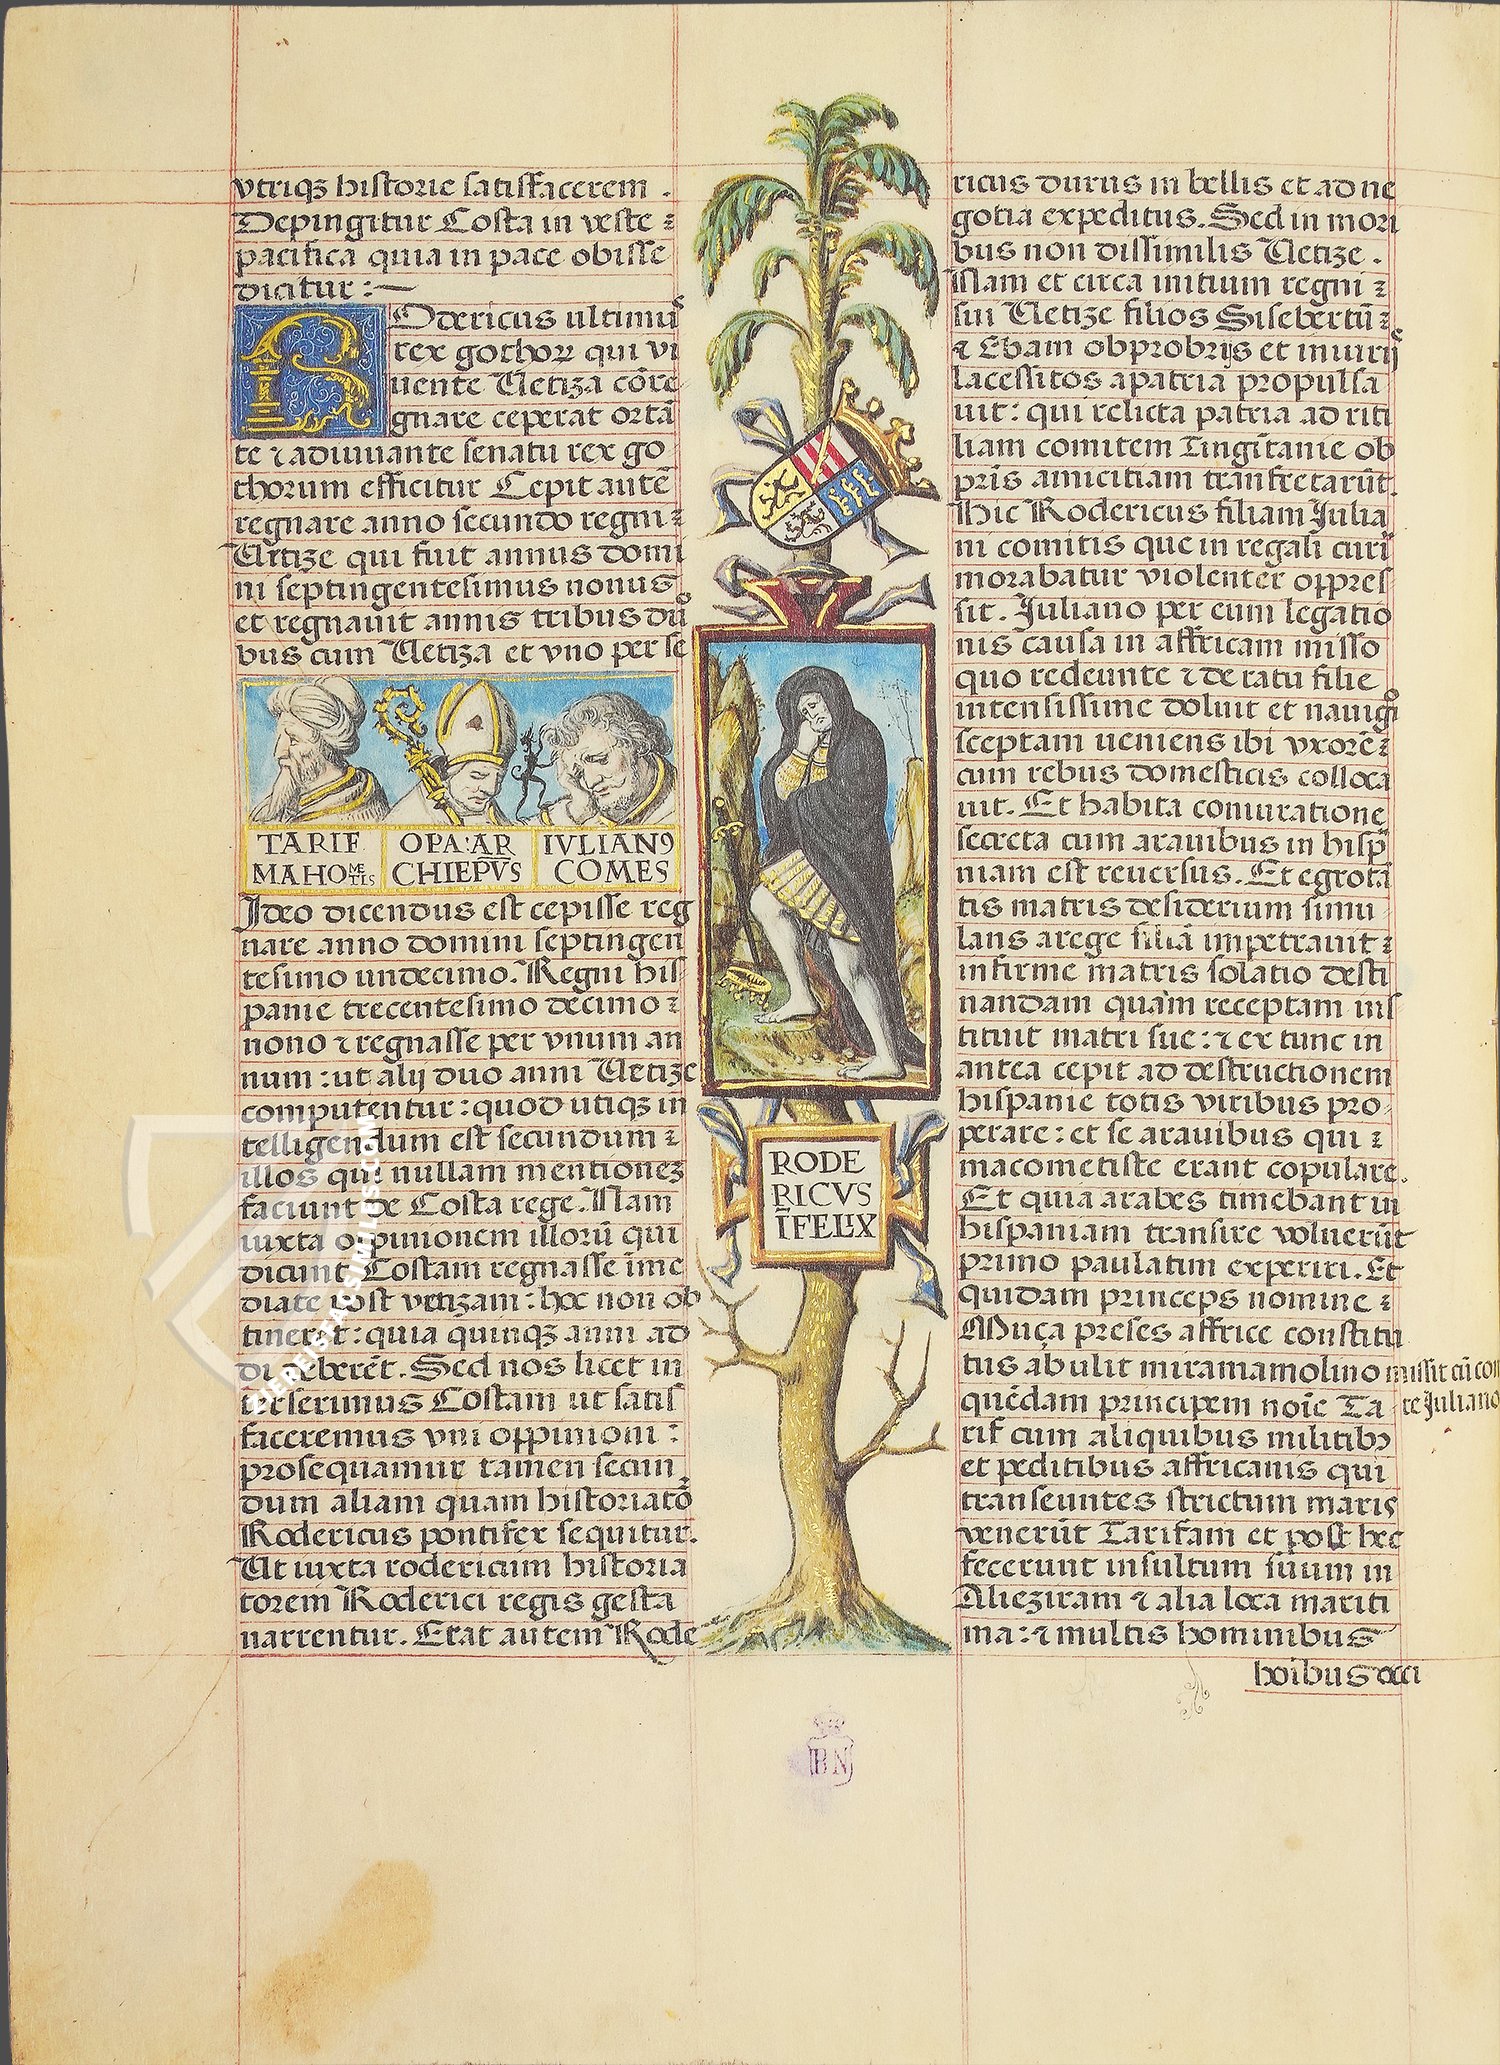 vtriqꝫ historie satisfacerem .
Depingitur Costa in veste ꝛ
pacifica quia in pace obisse
dicitur :—
ROdericus ultimus
rex gothoꝝ qui vi
uente Uetiza cōre
gnare ceperat ortā
te ⁊ adiuuante senatu rex go
thorum efficitur Cepit autē
regnare anno secundo regni ꝛ
Uetize qui fuit annus domi
ni septingentesimus nonus
et regnauit annis tribus du
bus cum Uetiza et vno per se
TARIF MAHOMETIS
OPA: AR CHIEPVS
IVLIANꝰ COMES
Ideo dicendus est cepisse reg
nare anno domini septingen
tesimo undecimo. Regni his
panie trecentesimo decimo ꝛ
nono ⁊ regnasse per vnum an
num : ut alij duo anni Uetize
computentur : quod utiqꝫ in
telligendum est secundum ꝛ
illos qui nullam mentionez
faciunt de Costa rege. Nam
iuxta oppinionem illorū qui
dicunt Costam regnasse īme
diate post vetizam : hoc non ob
tineret : quia quinqꝫ anni ad
di deberēt. Sed nos licet in
terserimus Costam ut satis
faceremus vni oppinioni :
prosequamur tamen secun
dum aliam quam historiatō
Rodericus pontifex sequitur.
Ut iuxta rodericum historia
torem Roderici regis gesta
narrentur. Erat autem Rode
RODE
RICVS
ĪFELIX
ricus durus in bellis et ad ne
gotia expeditus. Sed in mori
bus non dissimilis Uetize .
Nam et circa initium regni ꝛ
sui Uetize filios Sisebertū ꝛ
⁊ Ebam obprobrijs et iniurijs
lacessitos a patria propulsa
uit : qui relicta patria ad riti
liam comitem Tingitanie ob
pris̄ amicitiam transfretarūt.
Hic Rodericus filiam Julia
ni comitis que in regali curi
morabatur violenter oppres
sit. Juliano per eum legatio
nis causa in affricam misso
quo redeunte ⁊ de ratu filie
intensissime doluit et nauigō
sceptam ueniens ibi vxorē ꝛ
cum rebus domesticis colloca
uit. Et habita coniuratione
secreta cum arauibus in hisp
niam est reuersus. Et egrotā
tis matris desiderium simu
lans arege filiā impetrauit ꝛ
infirme matris solatio desti
nandam quam receptam ins
tituit matri sue : ⁊ ex tunc in
antea cepit ad destructionem
hispanie totis viribus pro
perare : et se arauibus qui ꝛ
macometiste erant copulare.
Et quia arabes timebant in
hispaniam transire voluerūt
primo paulatim experiri. Et
quidam princeps nomine ꝛ
Muça preses affrice constitu
tus ab ulit miramamolino missit cū comi
quēdam principem noīe Ta te Juliano
rif cum aliquibus militibꝰ
et peditibus affricanis qui
transeuntes strictum maris
venerūt Tarifam et post hec
fecerunt insultum suum in
Alieziram ⁊ alia loca mariti
ma : ⁊ multis hominibus
hoibus occi
BN